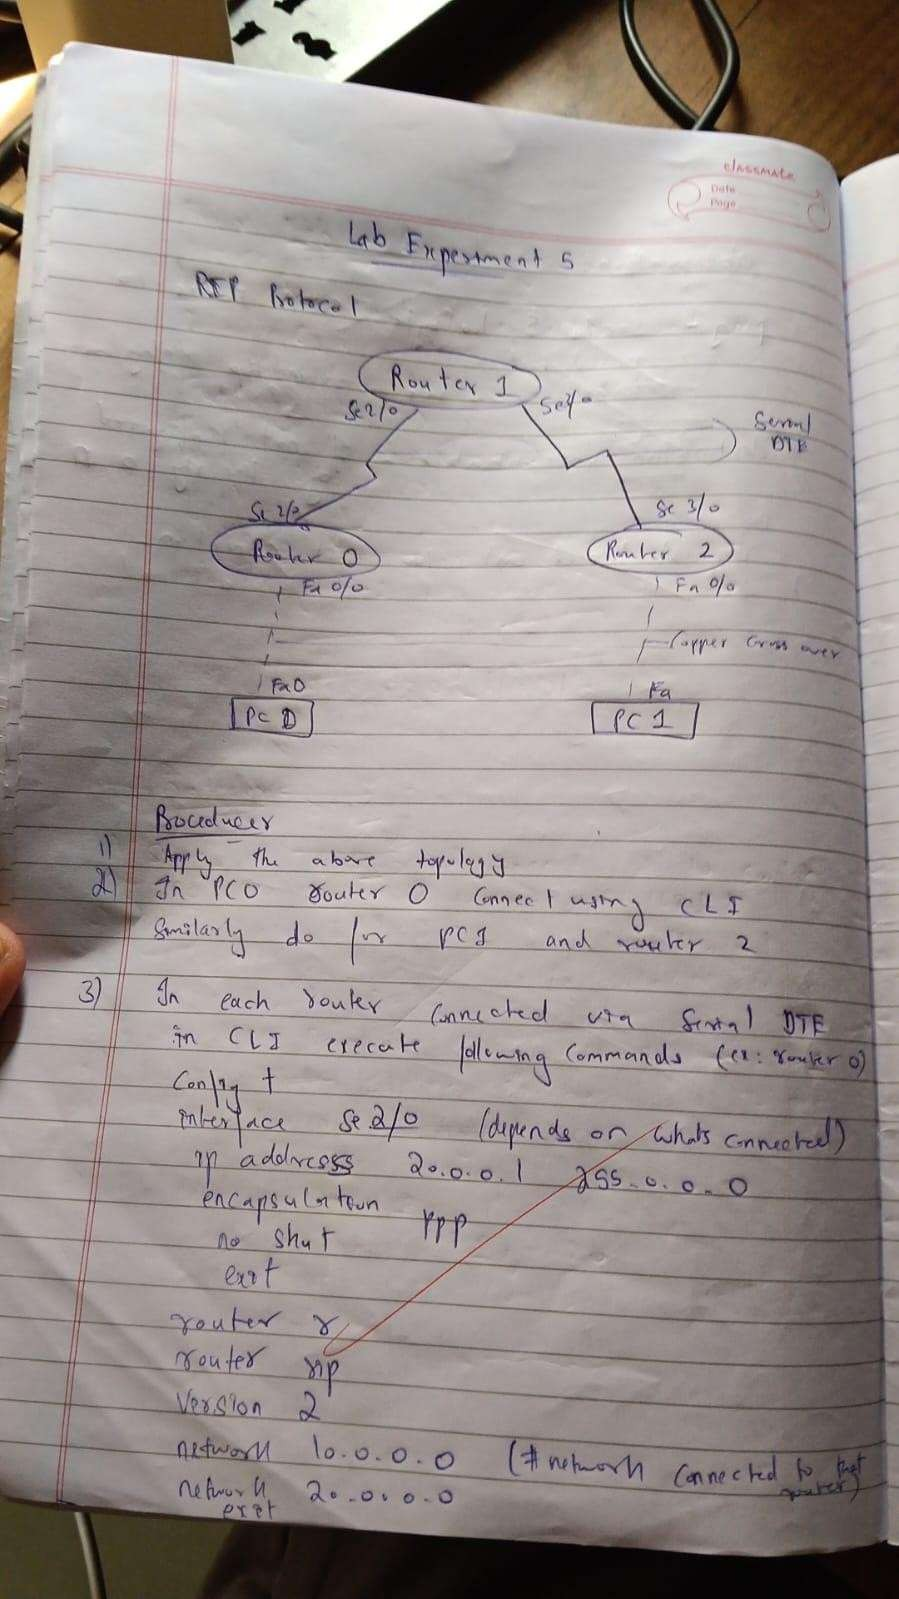 classmate
Date
Page
Lab Experiment 5
RIP Protocol
Router 1
Se2/0
Serial
DTE
Se 2/0
Se 3/0
Router 0
Router 2
Fa 0/0
Fa 0/0
Copper Cross over
Fa0
Fa
PC 0
PC 1
Procedure
1) Apply the above topology
2) In PC0 router 0 connect using CLI
Similarly do for PC1 and router 2
3) In each router connected via Serial DTE
in CLI execute following commands (ex: router 0)
Config t
interface Se 2/0 (depends on whats connected)
ip addresss 20.0.0.1 255.0.0.0
encapsulation ppp
no shut
exit
router r
router rip
Version 2
network 10.0.0.0 (# network connected to that router)
network 20.0.0.0
exit